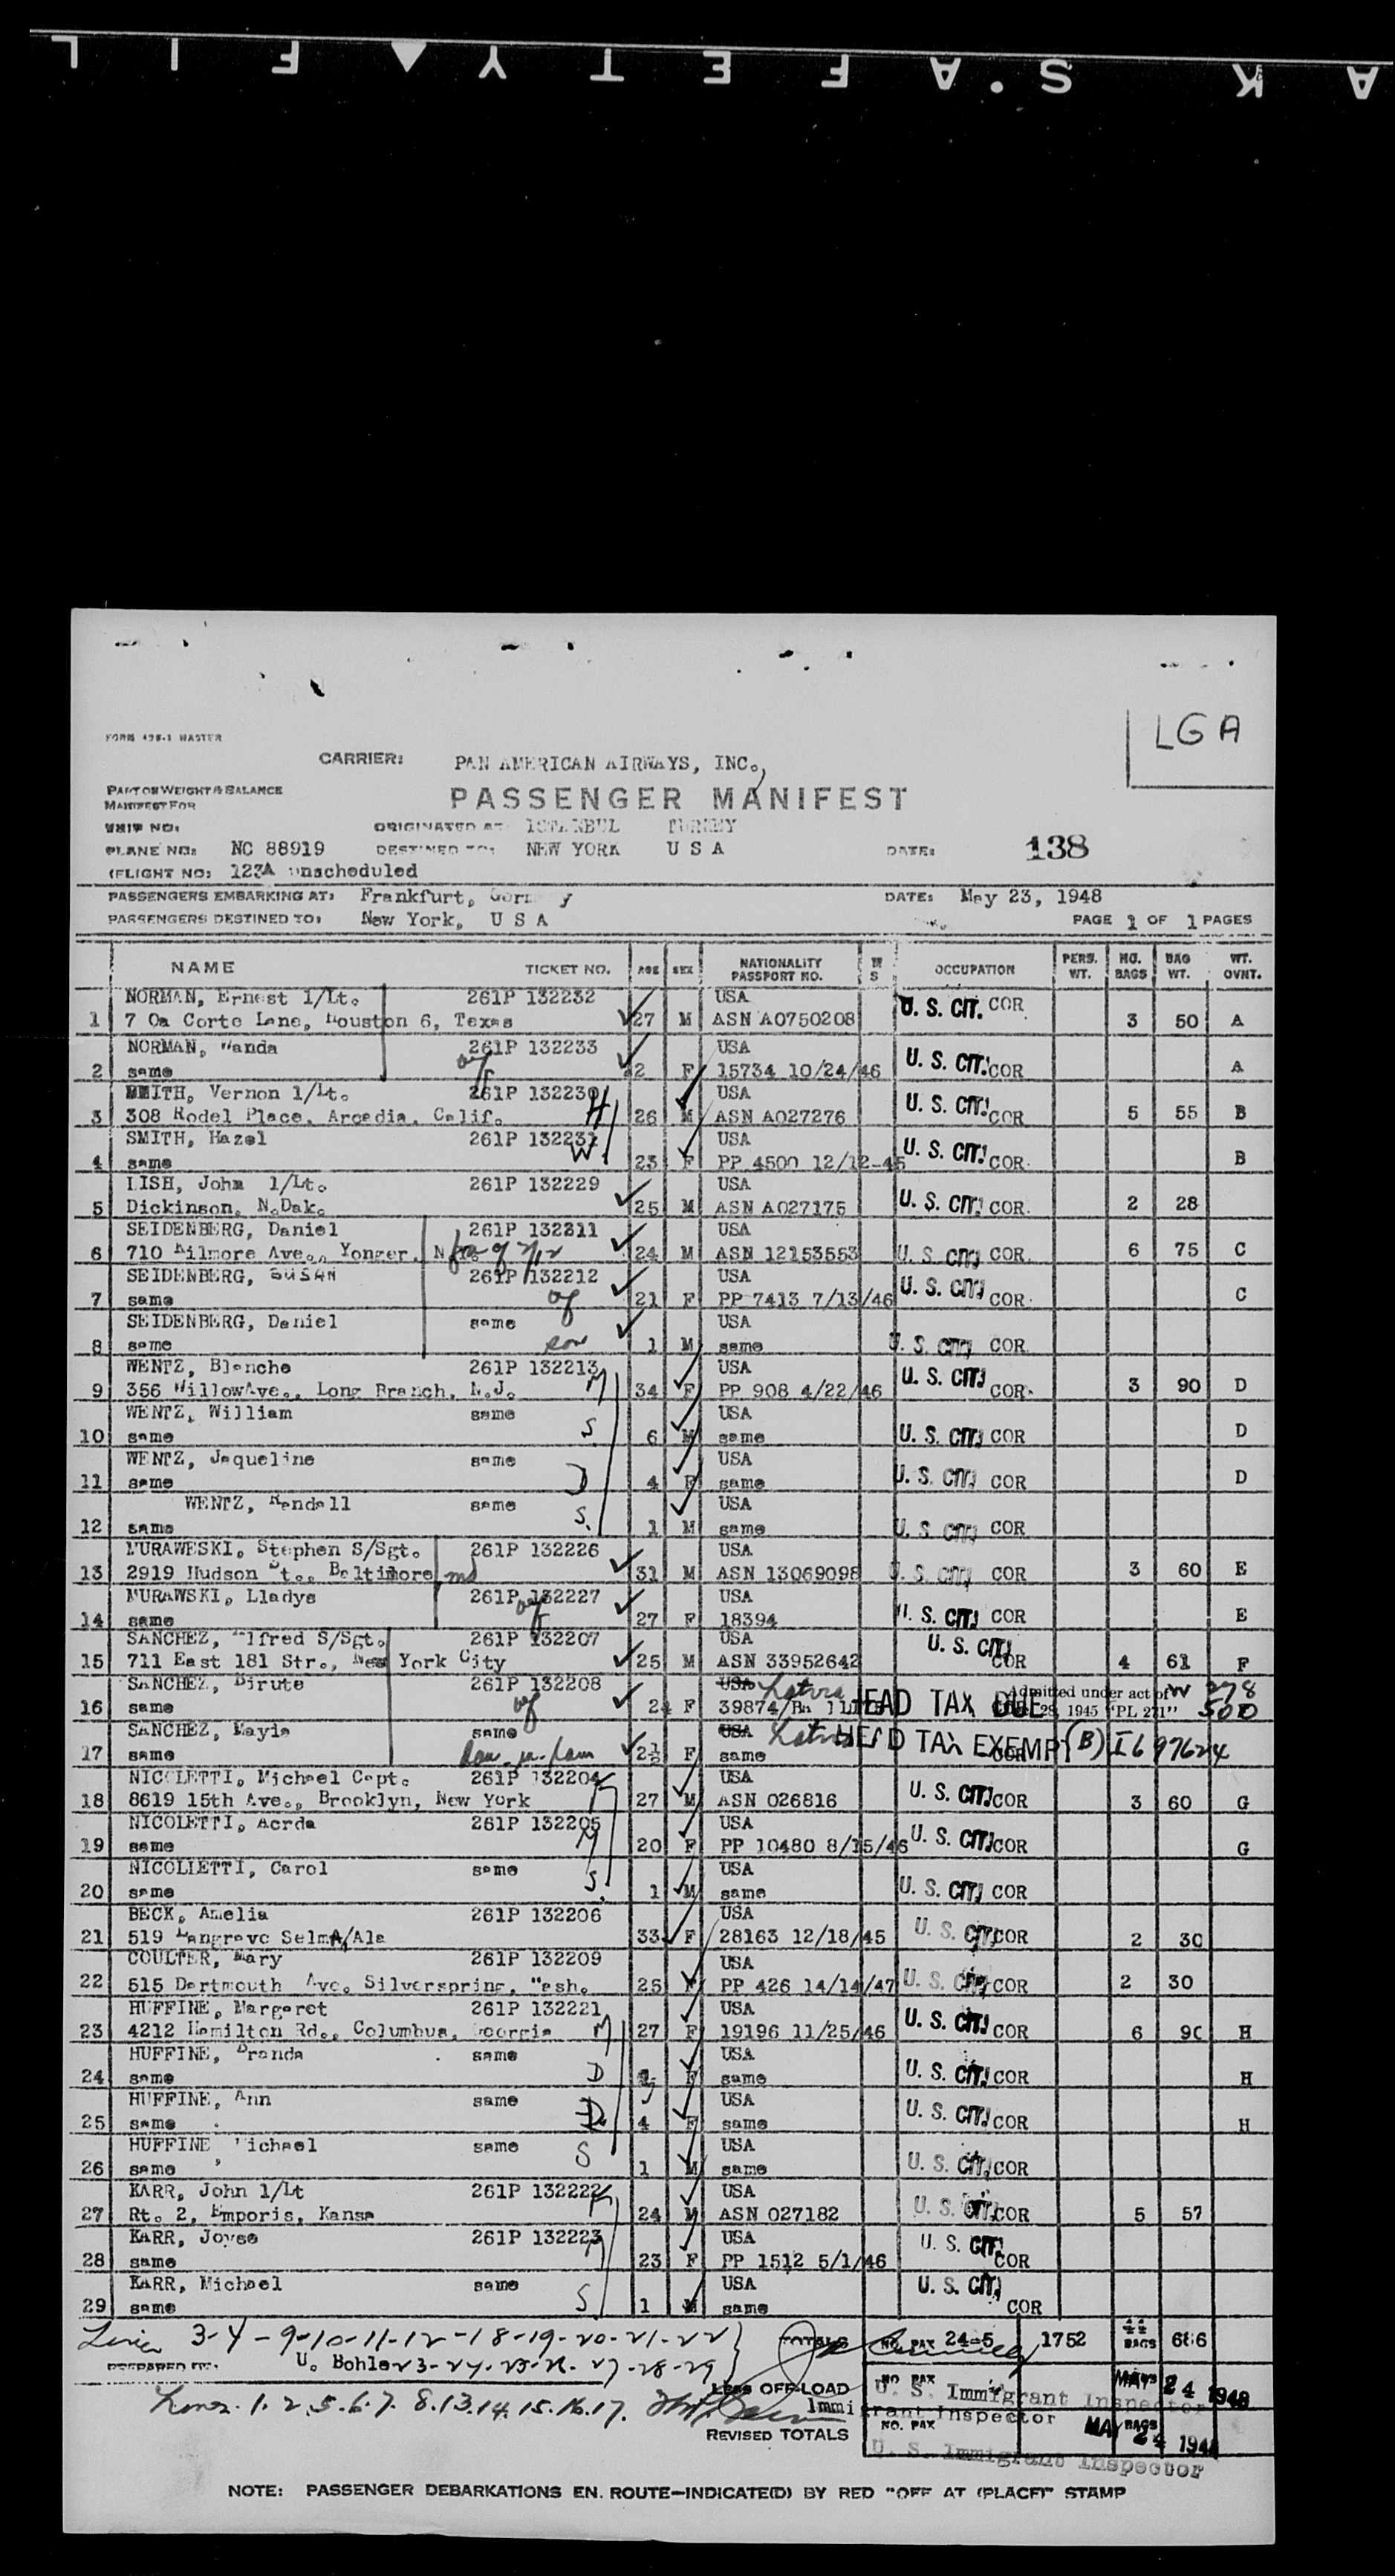 SAFETY FIL
LGA
FORM 495-1 MASTER
CARRIER: PAN AMERICAN AIRWAYS, INC.
PART ON WEIGHT & BALANCE
MANIFEST FOR
PASSENGER MANIFEST
SHIP NO: ORIGINATED AT: ISTANBUL TURKEY
PLANE NO: NC 88919 DESTINED TO: NEW YORK U S A DATE: 138
FLIGHT NO: 123A unscheduled
PASSENGERS EMBARKING AT: Frankfurt, DATE: May 23, 1948
PASSENGERS DESTINED TO: New York, U S A PAGE 1 OF 1 PAGES
NAME TICKET NO. AGE SEX NATIONALITY PASSPORT NO. W S OCCUPATION PERS. WT. NO. BAGS BAG WT. WT. OVNT.
NORMAN, Ernest 1/Lt. 261P 132232 USA U. S. CIT. COR
1 7 Oa Corte Lane, Houston 6, Texas 27 M ASN A0750208 3 50 A
NORMAN, Wanda 261P 132233 USA U. S. CIT. COR
2 same wf 2 F 15734 10/24/46 A
SMITH, Vernon 1/Lt. 261P 132230 USA U. S. CIT. COR
3 308 Rodel Place, Arcadia, Calif. H 26 M ASN A027276 5 55 B
SMITH, Hazel 261P 132231 USA U. S. CIT. COR
4 same W. 23 F PP 4500 12/12-45 B
LISH, John 1/Lt. 261P 132229 USA U. S. CIT. COR
5 Dickinson, N.Dak. 25 M ASN A027175 2 28
SEIDENBERG, Daniel 261P 132211 USA U. S. CIT. COR
6 710 Kilmore Ave., Yonger, 24 M ASN 12153553 6 75 C
SEIDENBERG, SUSAN 261P 132212 USA U. S. CIT. COR
7 same wf 21 F PP 7413 7/13/46 C
SEIDENBERG, Daniel same USA U. S. CIT. COR
8 same son 1 M same
WENTZ, Blanche 261P 132213 USA U. S. CIT. COR
9 356 WillowAve., Long Branch, N.J. M 34 F PP 908 4/22/46 3 90 D
WENTZ, William same USA U. S. CIT. COR
10 same S. 6 M same D
WENTZ, Jaqueline same USA U. S. CIT. COR
11 same D 4 F same D
WENTZ, Randall same USA U. S. CIT. COR
12 same S. 1 M same
MURAWESKI, Stephen S/Sgt. 261P 132226 USA U. S. CIT. COR
13 2919 Hudson St., Baltimore md 31 M ASN 13069098 3 60 E
MURAWSKI, Lladys 261P 132227 USA U. S. CIT. COR
14 same wf 27 F 18394 E
SANCHEZ, Alfred S/Sgt. 261P 132207 USA U. S. CIT. COR
15 711 East 181 Str., New York City 25 M ASN 33952642 4 61 F
SANCHEZ, Birute 261P 132208 USA Latvia HEAD TAX DUE Admitted under act of W 278
16 same wf 24 F 39874/Ba 28, 1945 "PL 271" 500
SANCHEZ, Mayia same USA Latvia HEAD TAX EXEMPT (B) I697624
17 same 2½ F same COR
NICOLETTI, Michael Capt. 261P 132204 USA U. S. CIT. COR
18 8619 15th Ave., Brooklyn, New York 27 M ASN 026816 3 60 G
NICOLETTI, Acrda 261P 132205 USA U. S. CIT. COR
19 same M 20 F PP 10480 8/15/46 G
NICOLLETTI, Carol same USA U. S. CIT. COR
20 same S. 1 M same
BECK, Amelia 261P 132206 USA U. S. CIT. COR
21 519 Langrave SelmA/Ala 33 F 28163 12/18/45 2 30
COULTER, Mary 261P 132209 USA U. S. CIT. COR
22 515 Dartmouth Ave. Silverspring, Wash. 25 F PP 426 14/14/47 2 30
HUFFINE, Margaret 261P 132221 USA U. S. CIT. COR
23 4212 Hamilton Rd., Columbus, Georgia M 27 F 19196 11/25/46 6 90 H
HUFFINE, Branda same USA U. S. CIT. COR
24 same D F same H
HUFFINE, Ann same USA U. S. CIT. COR
25 same D 4 F same H
HUFFINE, Michael same USA U. S. CIT. COR
26 same S 1 M same
KARR, John 1/Lt 261P 132222 USA U. S. CIT. COR
27 Rt. 2, Emporis, Kansa 24 M ASN 027182 5 57
KARR, Joyse 261P 132223 USA U. S. CIT. COR
28 same 23 F PP 1512 5/1/46
KARR, Michael same USA U. S. CIT. COR
29 same S 1 M same
Lines 3-4-9-10-11-12-18-19-20-21-22 TOTALS NO. PAX 24-5 1752 44 BAGS 686
PREPARED BY: U. Bohle 23-24-25-26-27-28-29
LESS OFF-LOAD NO. PAX U. S. Immigrant Inspector MAY 24 1948
Lines. 1. 2. 5. 6. 7. 8. 13. 14. 15. 16. 17. Immigrant Inspector
REVISED TOTALS NO. PAX BAGS MAY 24 1948
U. S. Immigrant Inspector
NOTE: PASSENGER DEBARKATIONS EN. ROUTE—INDICATE(D) BY RED "OFF AT (PLACE)" STAMP